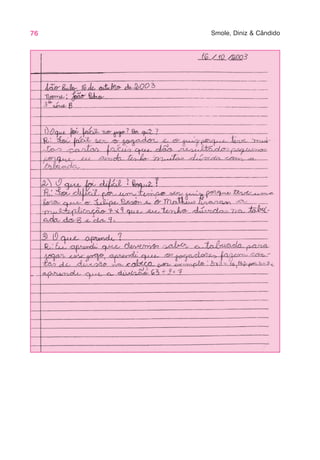 76
Smole, Diniz & Cândido
16/10/2003
São Paulo 16 de outubro de 2003
Nome: João Pedro
1ª série B
1) O que foi fácil no jogo? Por quê?
R: Foi fácil ser o jogador e o juiz porque teve mui-
tas cartas fáceis que dão resultados pequenos
porque eu ainda tenho muitas dúvida com a
tabuada.
2) O que foi difícil? Porquê?
R: Foi difícil por um tempo ser juiz porque teve uma
hora que o Felipe e o Matheus tiraram a
multiplicação 7x9 que eu tenho dúvidas na tabu-
ada do 8 e da 9.
3) O que aprende?
R: Eu aprendi que devemos saber a tabuada para
jogar esse jogo, aprendi que os jogadores fazem con-
tas de divisão na cabeça por exemplo:
aprende que a divisão 63 ÷ 9 = 7